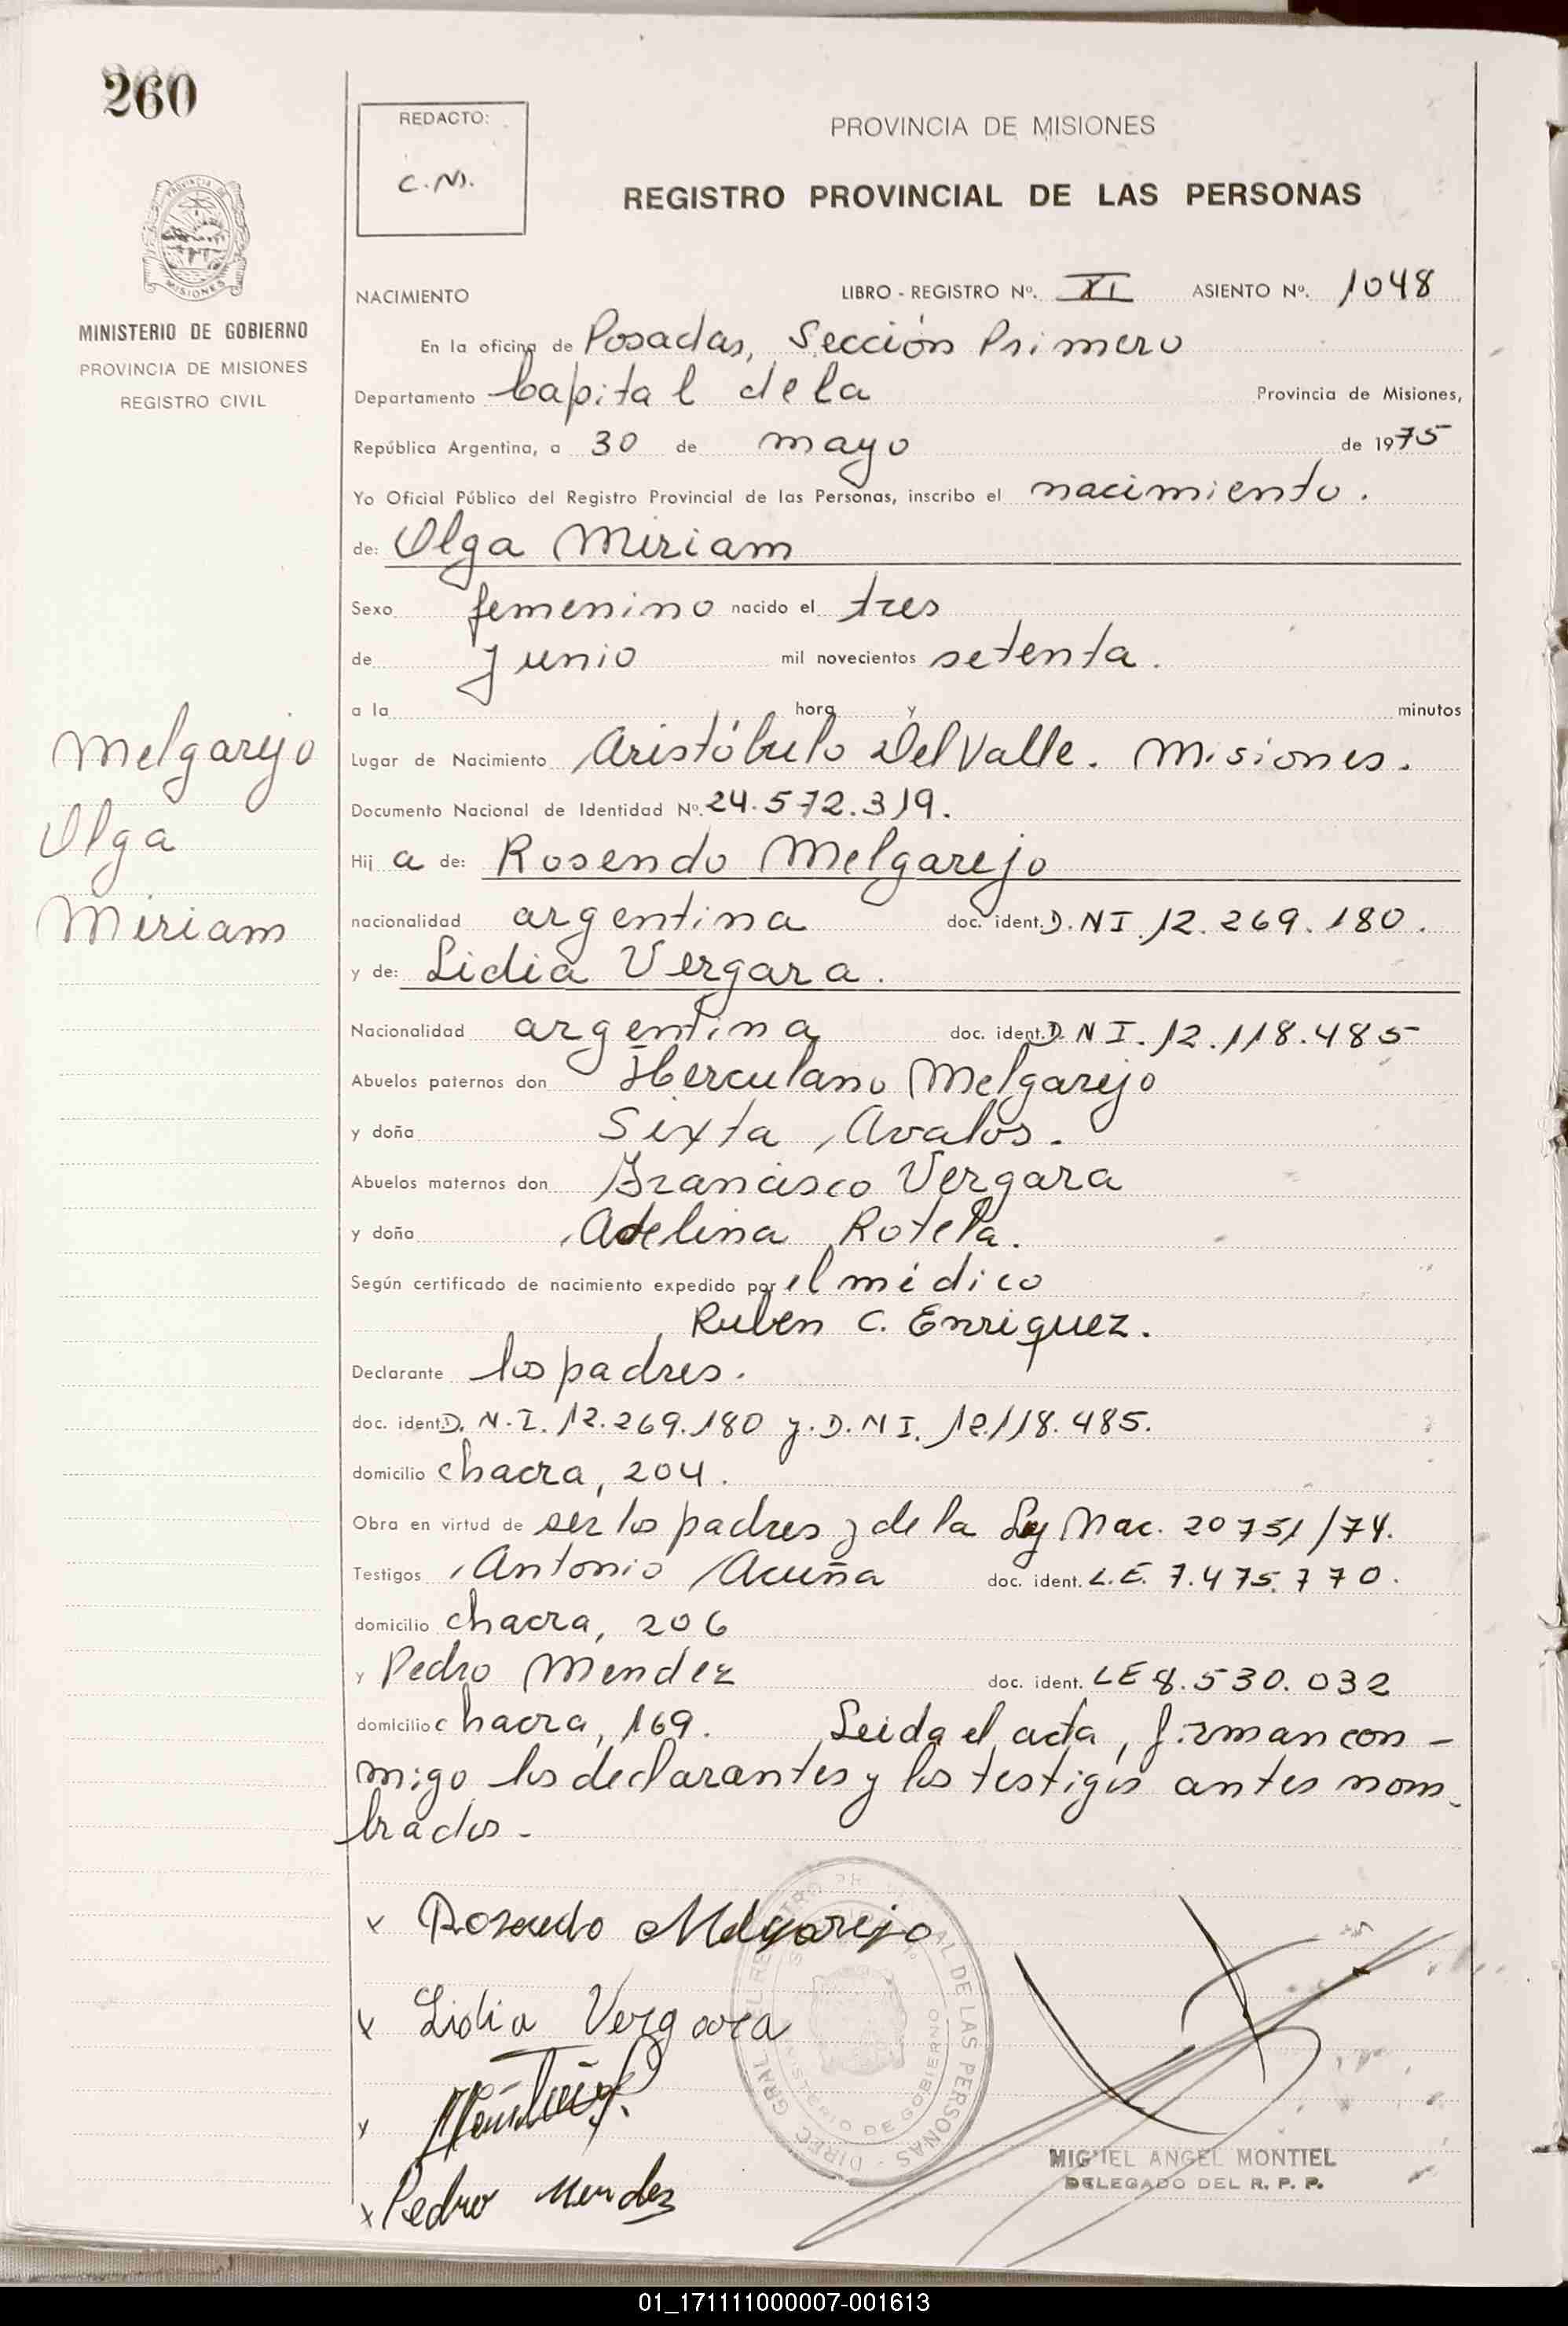 260
REDACTO:
C.N.
PROVINCIA DE MISIONES
REGISTRO PROVINCIAL DE LAS PERSONAS
PROVINCIA DE
MISIONES
MINISTERIO DE GOBIERNO
PROVINCIA DE MISIONES
REGISTRO CIVIL
NACIMIENTO LIBRO - REGISTRO Nº. XI ASIENTO Nº. 1048
En la oficina de Posadas, Sección Primero
Departamento Capital de la Provincia de Misiones,
República Argentina, a 30 de mayo de 1975
Yo Oficial Público del Registro Provincial de las Personas, inscribo el nacimiento.
de: Olga Miriam
Sexo femenino nacido el tres
de Junio mil novecientos setenta.
a la hora y minutos
Melgarejo
Olga
Miriam
Lugar de Nacimiento Aristóbulo Del Valle. Misiones.
Documento Nacional de Identidad Nº. 24.572.319.
Hij a de: Rosendo Melgarejo
nacionalidad argentina doc. ident. D.NI. 12.269.180.
y de: Lidia Vergara.
Nacionalidad argentina doc. ident. D.NI. 12.118.485
Abuelos paternos don Herculano Melgarejo
y doña Sixta Avalos.
Abuelos maternos don Francisco Vergara
y doña Adelina Rotela.
Según certificado de nacimiento expedido por el médico
Ruben C. Enriquez.
Declarante los padres.
doc. ident. D.N.I. 12.269.180 y D.NI. 12.118.485.
domicilio chacra, 204.
Obra en virtud de ser los padres y de la Ley Nac. 20751/74.
Testigos Antonio Acuña doc. ident. L.E. 7.475.770.
domicilio chacra, 206
y Pedro Mendez doc. ident. LE 8.530.032
domicilio chacra, 169. Leida el acta, firman con-
migo los declarantes y los testigos antes nom-
brados.-
x Rosendo Melgarejo
x Lidia Vergara
x
x Pedro Mendez
DIREC. GRAL. DE LAS PERSONAS
MINISTERIO DE GOBIERNO
MIGUEL ANGEL MONTIEL
DELEGADO DEL R. P. P.
01_171111000007-001613